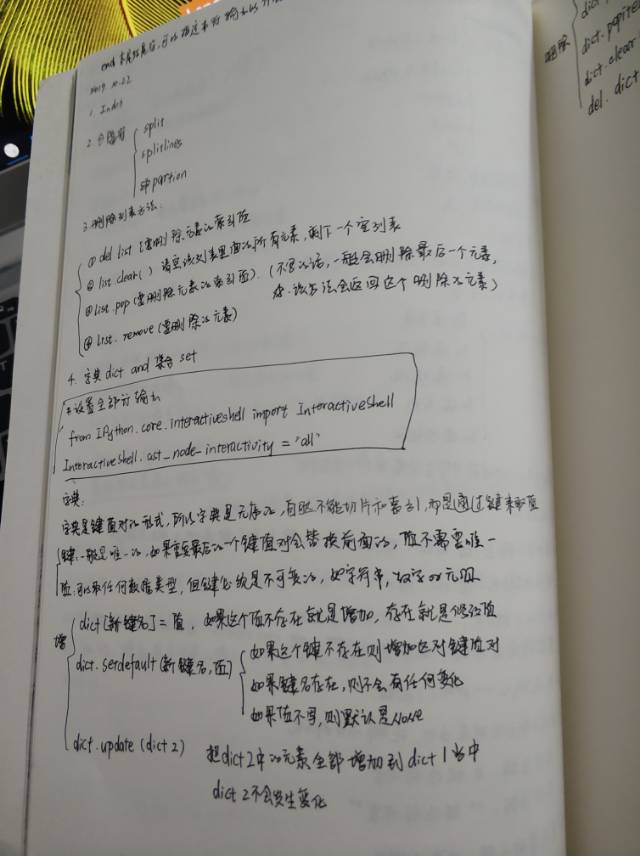 end 本质结束后,可以
2. 分隔符
split
splitlines
partion
3. 删除列表方法:
① del list [要删除元素的索引值
② list.clear() 清空该列表里面的所有元素,剩下一个空列表
③ list.pop(要删除元素的索引值).(不写的话,一般会删除最后一个元素,
该方法会返回这个删除的元素)
④ list.remove(要删除的元素)
4. 字典 dict and 集合 set
#设置全部行输出
from IPython.core.interactiveshell import InteractiveShell
InteractiveShell.ast_node_interactivity = 'all'
字典:
字典是键值对的形式,所以字典是无序的,自然不能切片和索引,而是通过键来取值
键:一般是唯一的,如果重复最后的一个键值对会替换前面的,值不需要唯一
值:可以取任何数据类型,但键必须是不可变的,如字符串,数字or元组
增
dict[新键名]=值,如果这个值不存在就是增加,存在就是修改值
dict.serdefault(新键名,值)
如果这个键不存在则增加这对键值对
如果键名存在,则不会有任何变化
如果值不写,则默认是None
dict.update(dict2) 把dict2中的元素全部增加到dict1当中
dict2不会发生变化
删除
dict.
dict.popite
dict.clear
del. dict